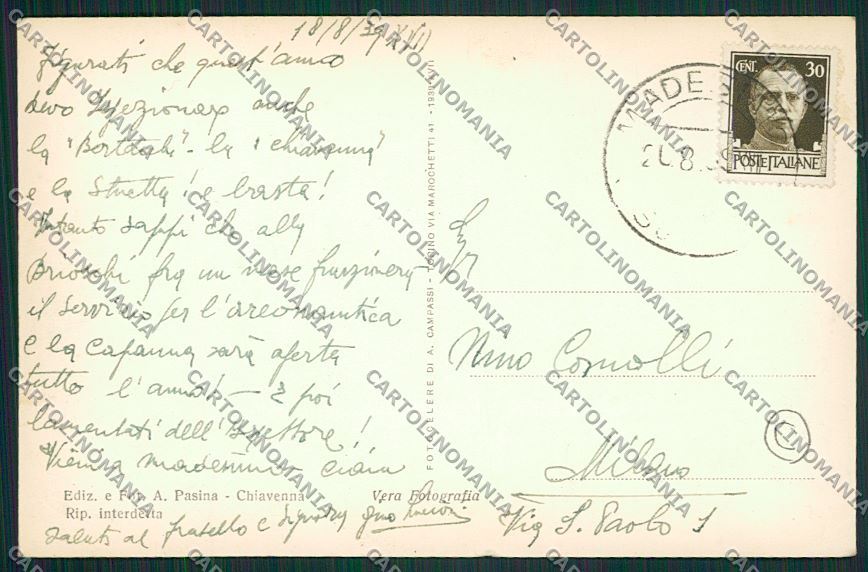 18/8/39 XVII
Figurati che quest'anno
devo Ispezionare anche
la "Bertacchi" - la "Chiavenna"
e la Stuetta! e basta!
Intanto sappi che alla
Brioschi fra un mese funzionerà
il servizio per l'areonautica
e la Capanna sarà aperta
tutto l'anno! - E poi
lamentati dell'Ispettore!
ciaiu
Ediz. e Fot. A. Pasina - Chiavenna
Vera Fotografia
Rip. interdetta
saluti al fratello e Signora
FOTOCELERE DI A. CAMPASSI - TORINO VIA MAROCHETTI 41 - 1939-XVII
CENT. 30
POSTE ITALIANE
MADE
20.8.39
SO
Nino Comolli
Milano
Via S. Paolo 1
C
CARTOLINOMANIA